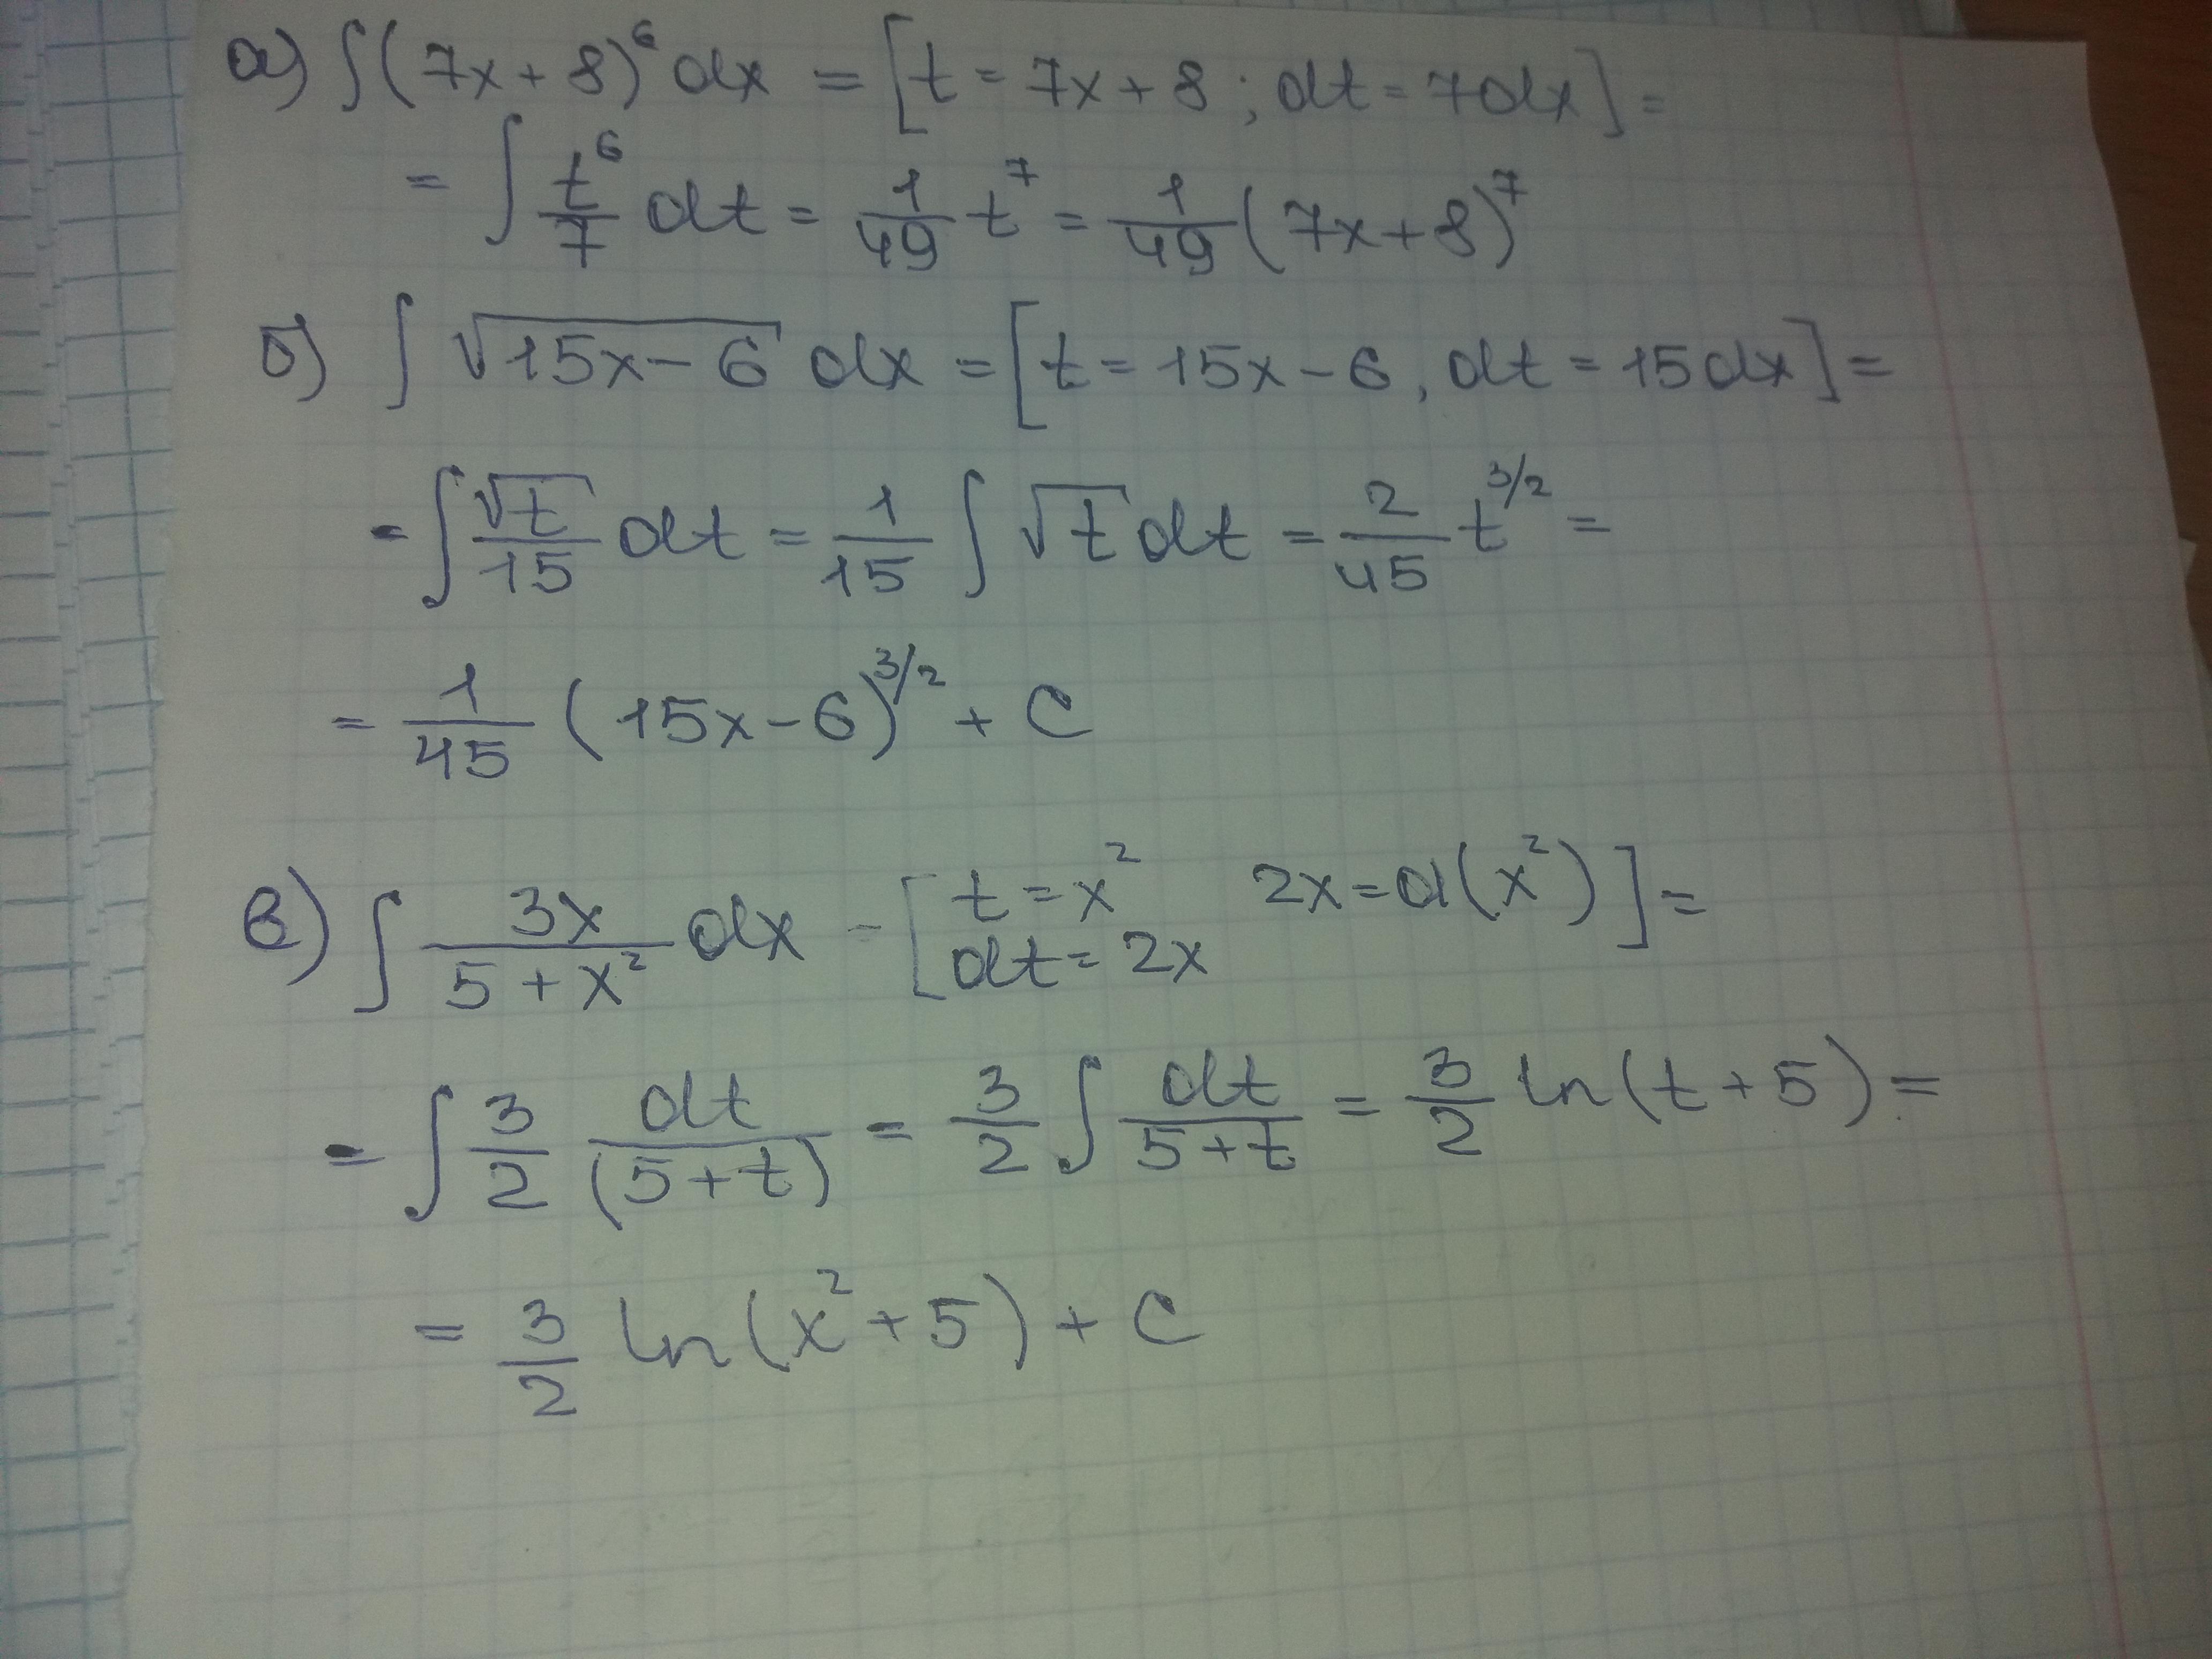 а) ∫(7x+8)⁶dx = [t = 7x+8; dt = 7dx] =
= ∫ t⁶/7 dt = 1/49 t⁷ = 1/49 (7x+8)⁷
б) ∫ √(15x-6) dx = [t = 15x-6, dt = 15dx] =
= ∫ √t/15 dt = 1/15 ∫ √t dt = 2/45 t^(3/2) =
= 1/45 (15x-6)^(3/2) + C
в) ∫ 3x/(5+x²) dx = [t = x² 2x = d(x²)] =
dt = 2x
= ∫ 3/2 dt/(5+t) = 3/2 ∫ dt/(5+t) = 3/2 ln(t+5) =
= 3/2 ln(x²+5) + C